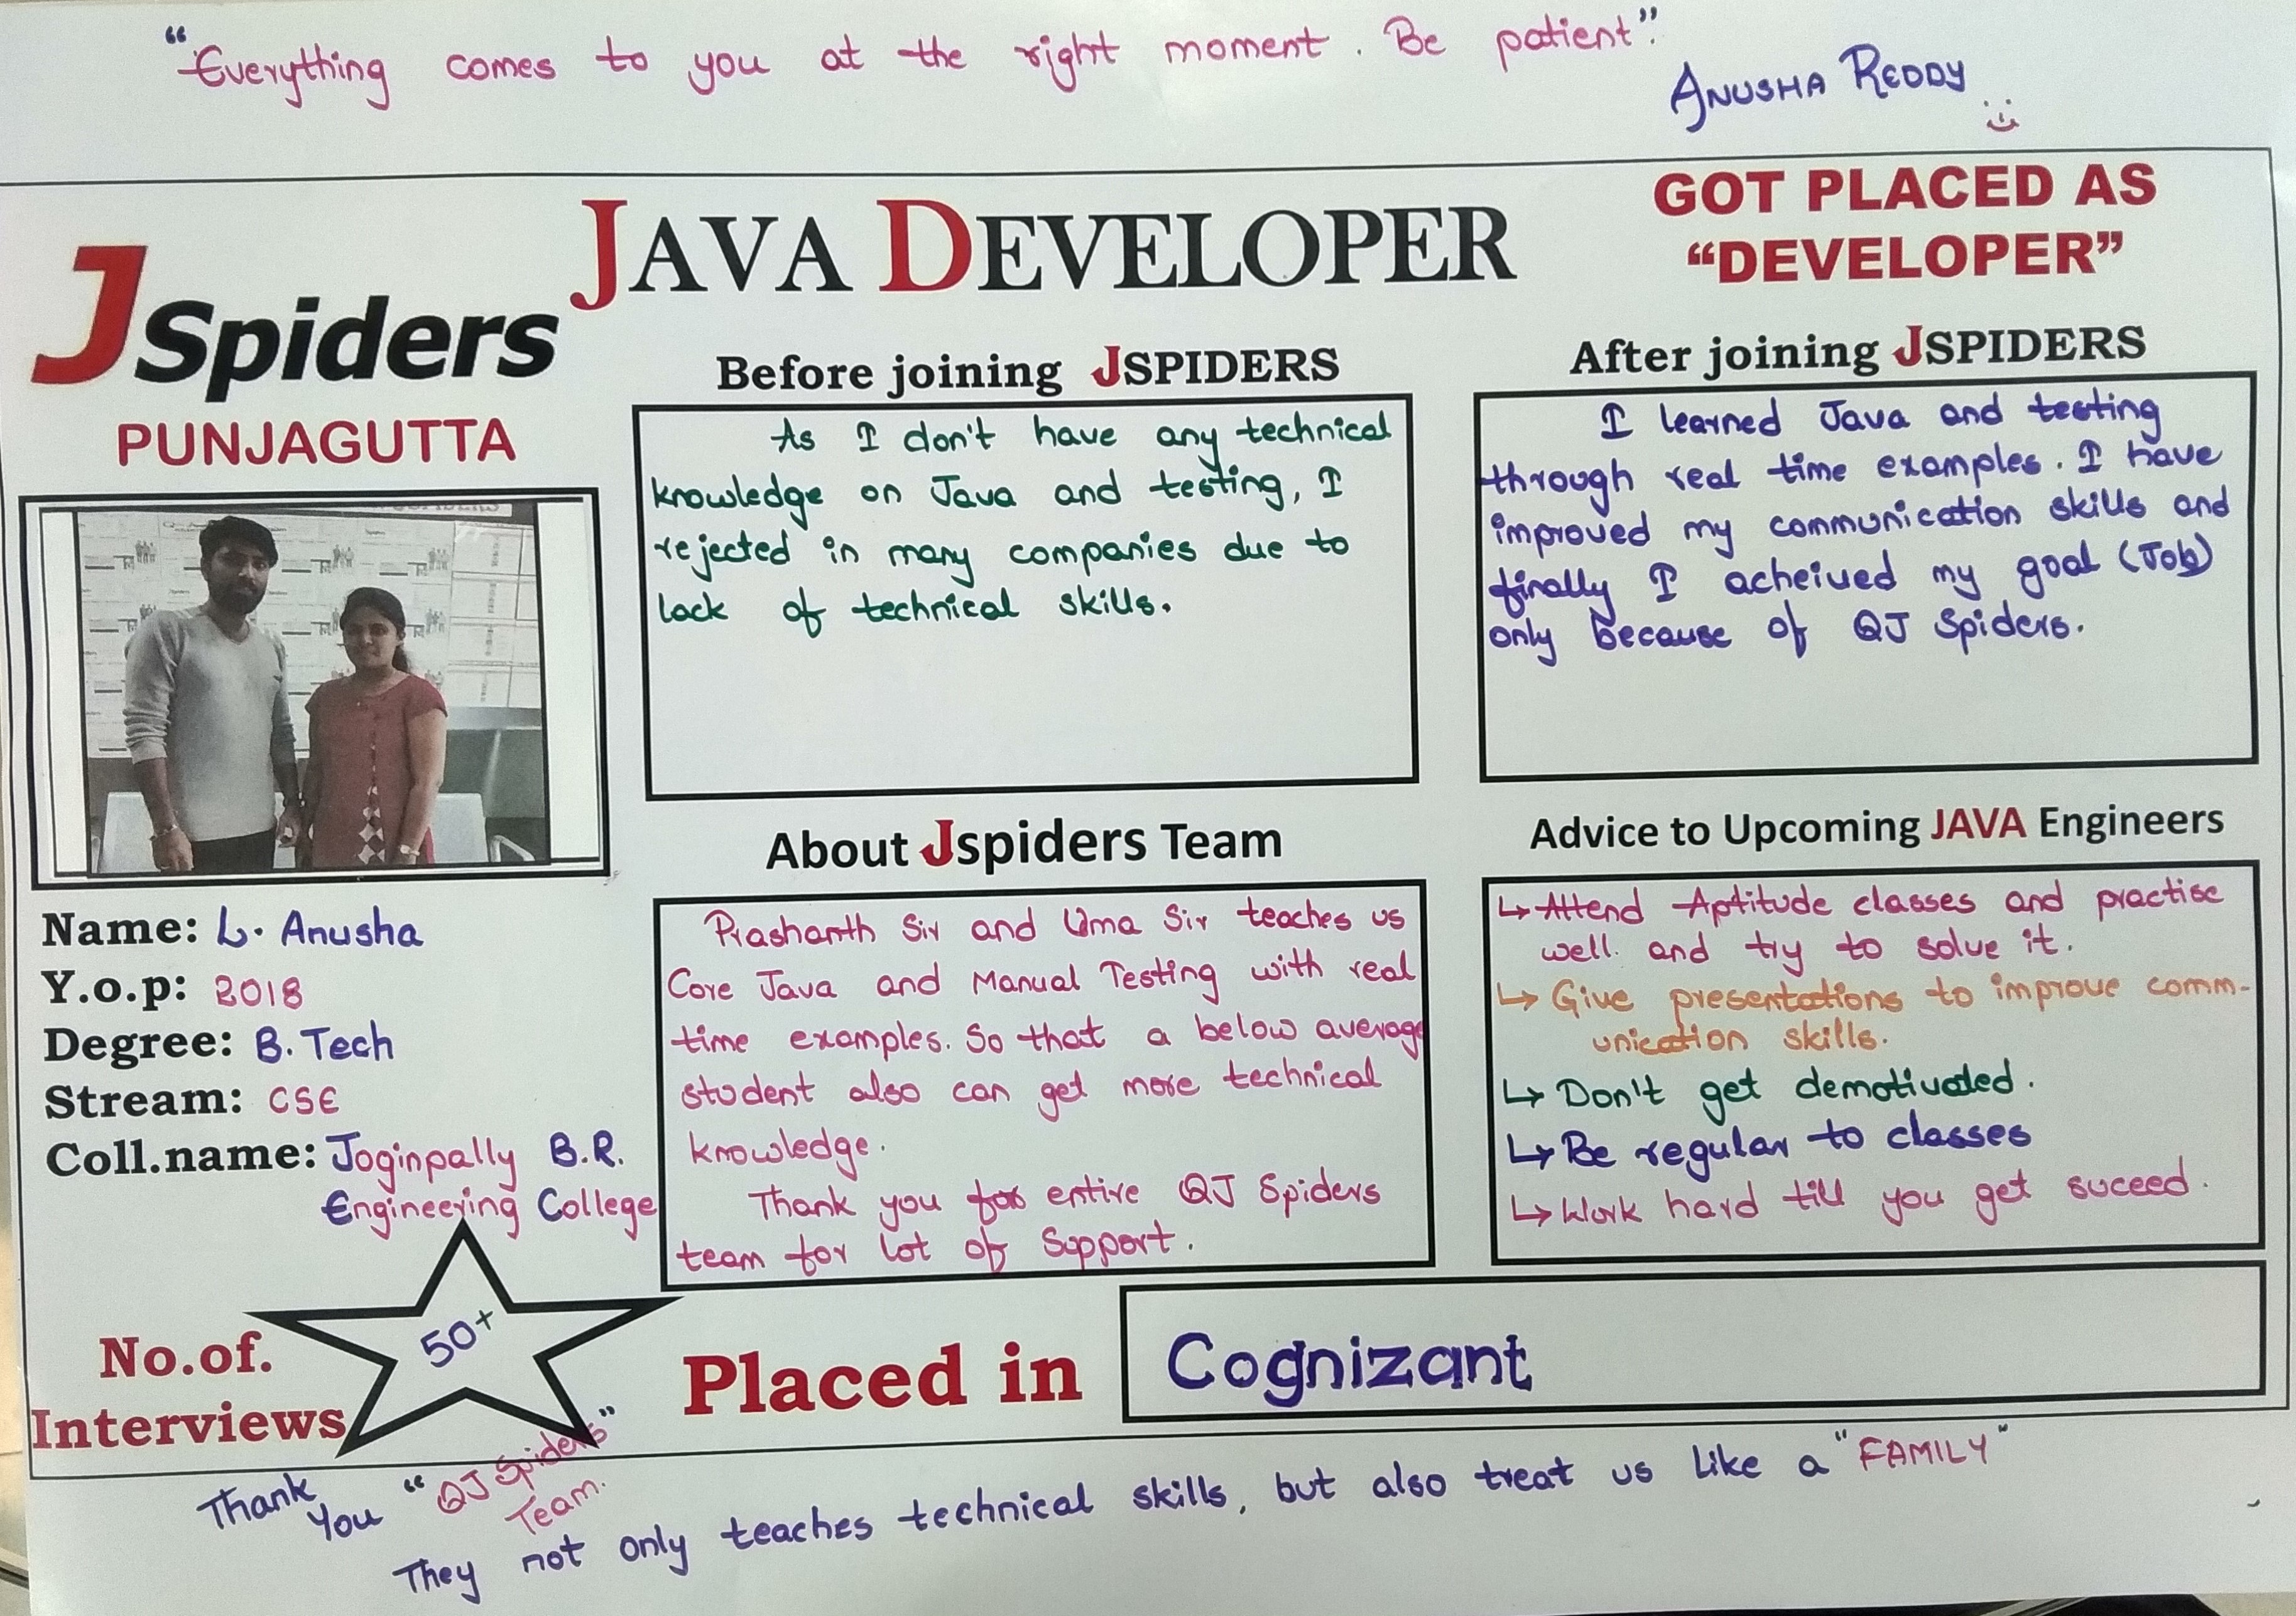 "Everything comes to you at the right moment. Be patient".
ANUSHA REDDY
JAVA DEVELOPER
GOT PLACED AS
"DEVELOPER"
JSpiders
PUNJAGUTTA
Before joining JSPIDERS
As I don't have any technical
knowledge on Java and testing, I
rejected in many companies due to
lack of technical skills.
After joining JSPIDERS
I learned Java and testing
through real time examples. I have
improved my communication skills and
finally I acheived my goal (Job)
only because of QJ Spiders.
Name: L. Anusha
Y.o.p: 2018
Degree: B.Tech
Stream: CSE
Coll.name: Joginpally B.R.
Engineering College
About Jspiders Team
Prashanth Sir and Uma Sir teaches us
Core Java and Manual Testing with real
time examples. So that a below average
student also can get more technical
knowledge.
Thank you for entire QJ Spiders
team for lot of Support.
Advice to Upcoming JAVA Engineers
↳ Attend Aptitude classes and practise
well. and try to solve it.
↳ Give presentations to improve comm-
unication skills.
↳ Don't get demotivated.
↳ Be regular to classes
↳ Work hard till you get suceed.
No.of.
Interviews
50+
Placed in
Cognizant
Thank
You "QJ Spiders"
Team.
They not only teaches technical skills, but also treat us like a "FAMILY"